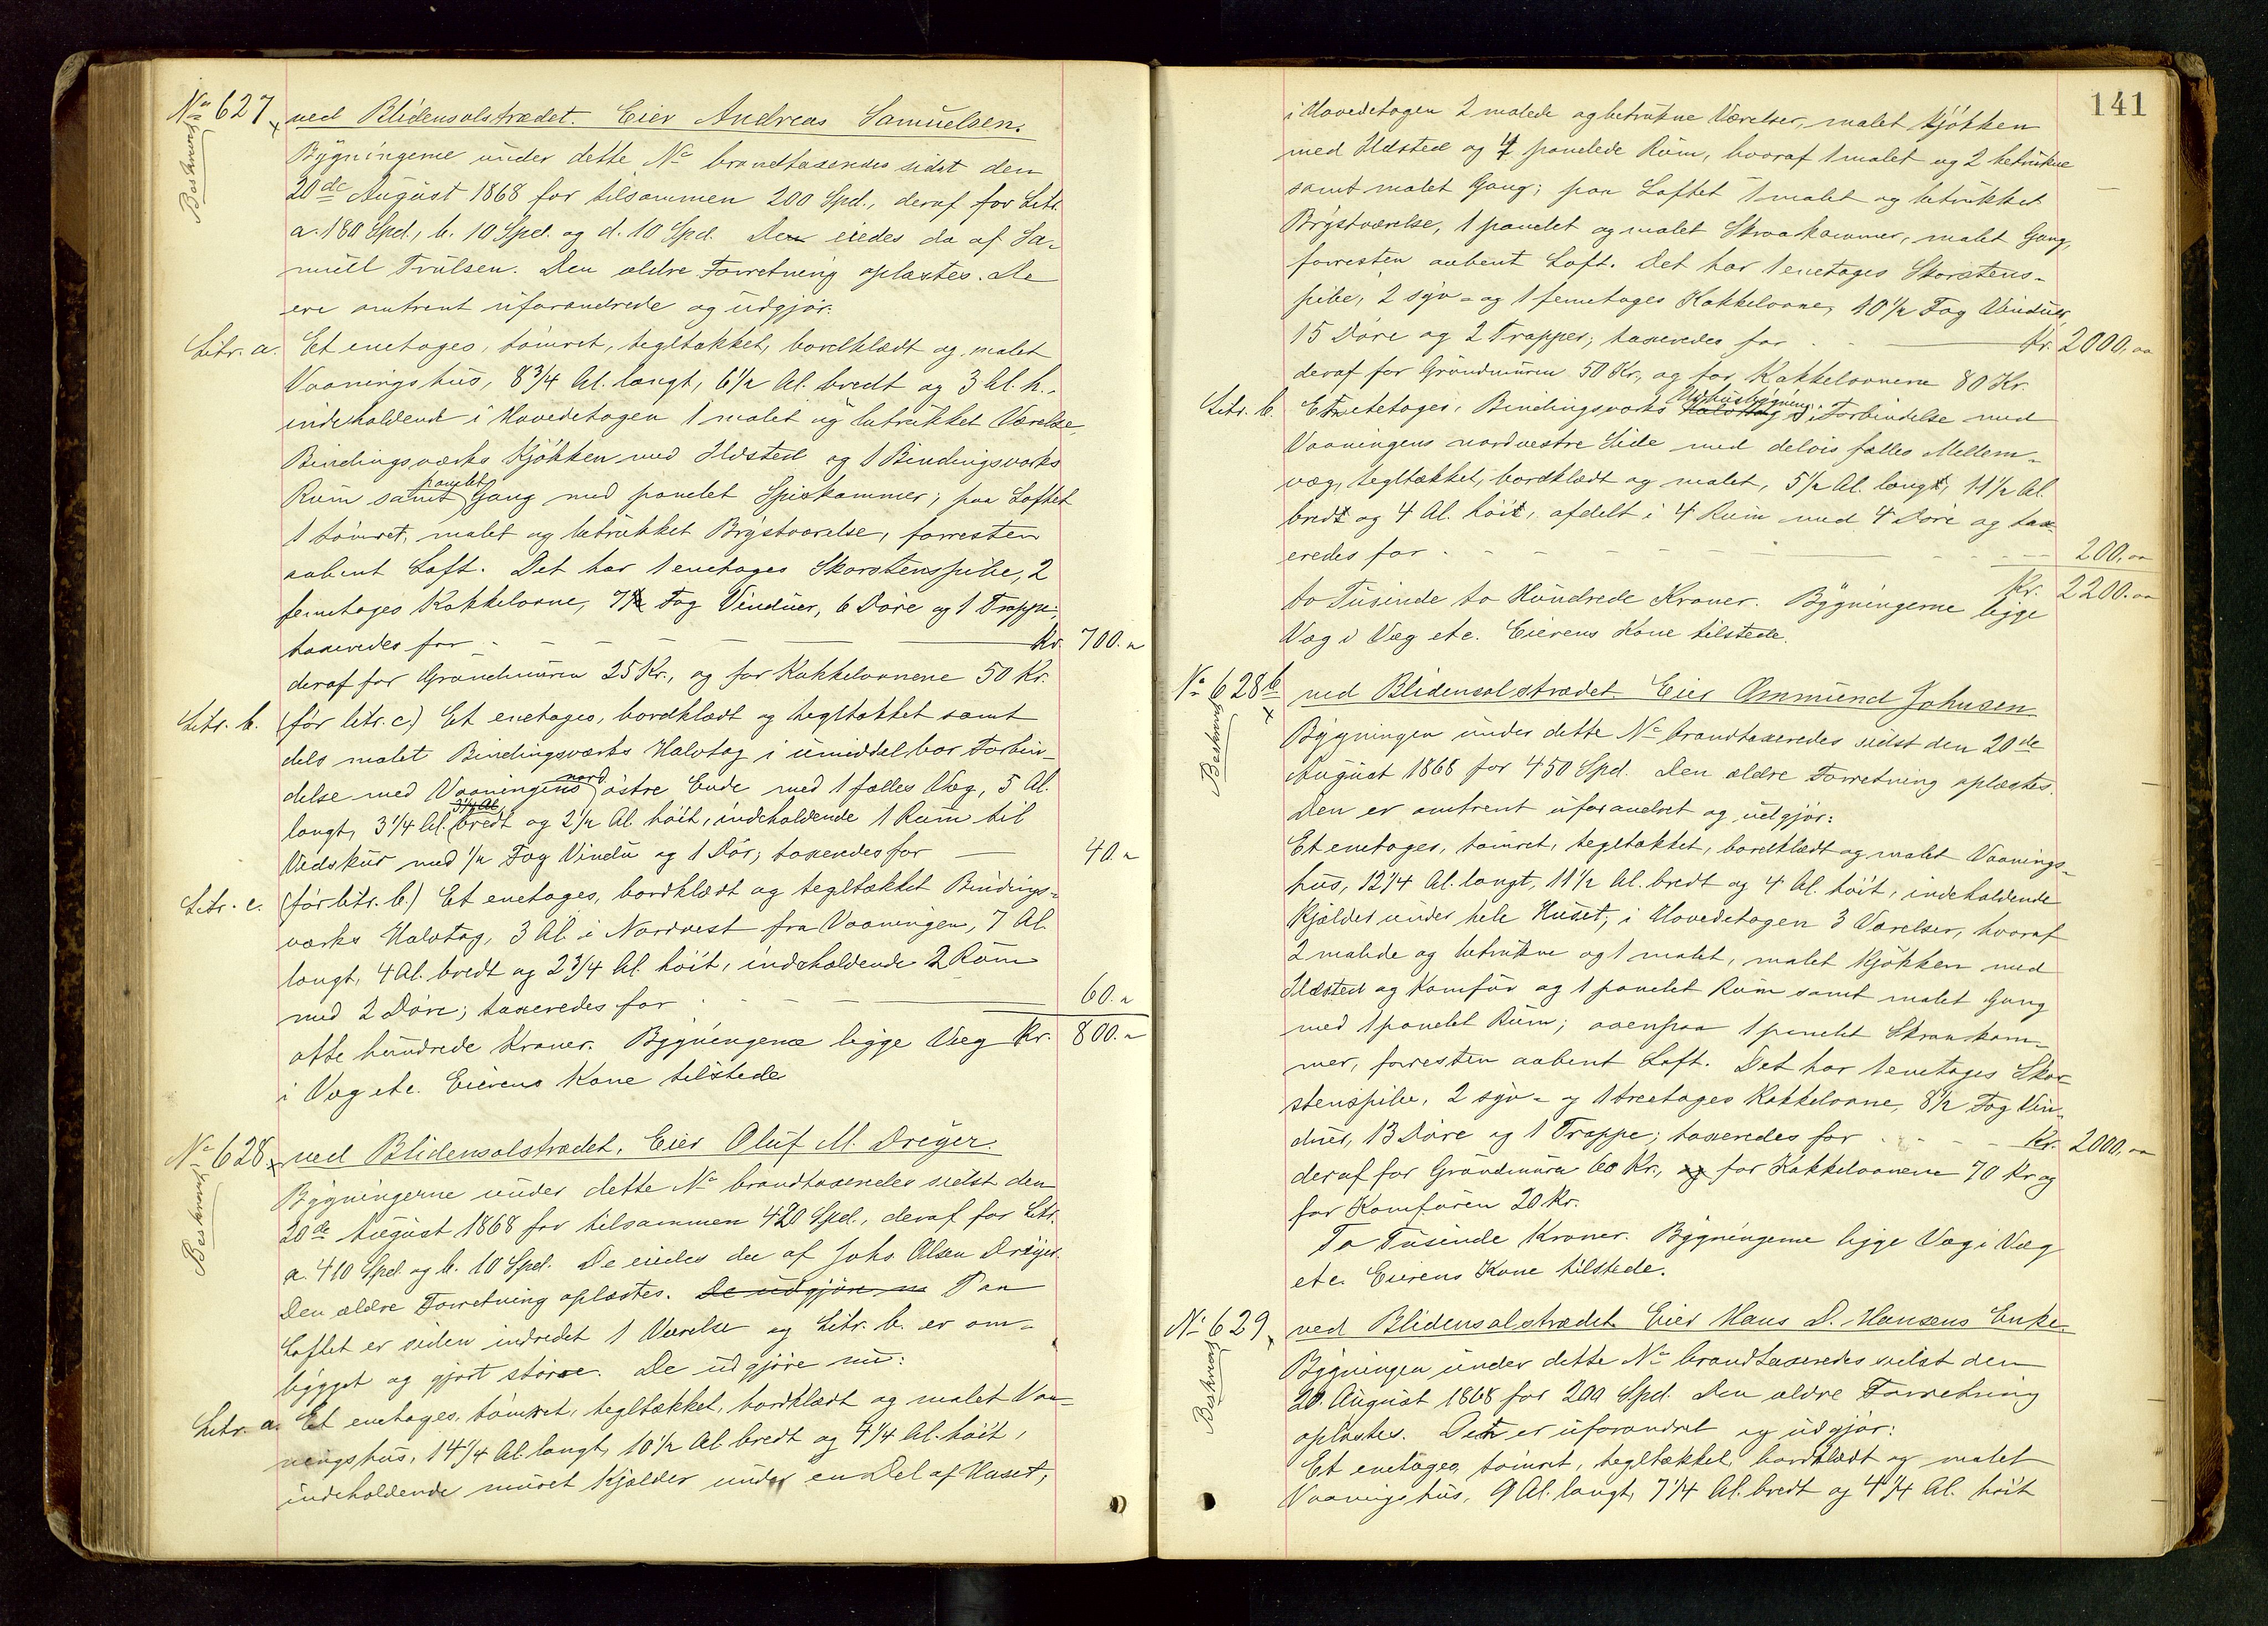 No 627 ved Blidensolstrædet. Eier Andreas Samuelsen.
Beskrevet
Bygningerne under dette No brandtaxeredes sidst den
20de August 1868 for tilsammen 200 Spd., deraf for Litr.
a. 180 Spd., b. 10 Spd. og d. 10 Spd. De eiedes da af Sa-
muel Trulsen. Den ældre Forretning oplæstes. De
ere omtrent uforandrede og udgjør:
Litr. a. Et enetages, tømret, tegltækket, bordklædt og malet
Vaaningshus, 8 3/4 Al. langt, 6 1/2 Al. bredt og 3 Al. h.,
indeholdend i Hovedetagen 1 malet og betrukket Værelse,
Bindingsværks Kjøkken med Ildsted og 1 Bindingsværks
Rum samt panelet Gang med panelet Spiskammer; paa Loftet
1 tømret, malet og betrukket Brystværelse, forresten
aabent Loft. Det har 1 enetages Skorstenspibe, 2
femetages Kakkelovne, 7 Fag Vinduer, 6 Døre og 1 Trappe;
taxeredes for - - - Kr. 700. "
deraf for Grundmuren 25 Kr., og for Kakkelovnene 50 Kr.
Litr. b. (før litr. c.) Et enetages, bordklædt og tegltækket samt
dels malet Bindingsværks Halvtag i umiddelbar Forbin-
delse med Vaaningens nordøstre Ende med 1 fælles Væg, 5 Al.
langt, 3 1/4 Al. bredt og 2 1/2 Al. høit, indeholdende 1 Rum til
Vedskur med 1/2 Fag Vindu og 1 Dør; taxeredes for 40. "
Litr. c. (før litr. b.) Et enetages, bordklædt og tegltækket Bindings-
værks Halvtag, 3 Al. i Nordvest fra Vaaningen, 7 Al.
langt, 4 Al. bredt og 2 3/4 Al. høit, indeholdende 2 Rum
med 2 Døre; taxeredes for 60. "
otte hundrede Kroner. Bygningerne ligge Væg Kr. 800. "
i Væg etc. Eierens Kone tilstede
No 628 ved Blidensolstrædet. Eier Oluf M. Dreyer.
Beskrevet
Bygningerne under dette No brandtaxeredes sidst den
20de August 1868 for tilsammen 420 Spd., deraf for Litr.
a. 410 Spd. og b. 10 Spd. De eiedes da af Johs Olsen Dreyer.
Den ældre Forretning oplæstes. De udgjøre nu Paa
Loftet er siden indredet 1 Værelse og Litr. b. er om-
bygget og gjort større. De udgjøre nu:
Litr. a. Et enetages, tømret, tegltækket, bordklædt og malet Vaa-
ningshus, 14 1/4 Al. langt, 10 1/2 Al. bredt og 4 1/4 Al. høit,
indeholdende muret Kjælder under en Del af Huset,
141
i Hovedetagen 2 malede og betrukne Værelser, malet Kjøkken
med Ildsted og 4 panelede Rum, hvoraf 1 malet og 2 betrukne
samt malet Gang; paa Loftet 1 malet og betrukket
Brystværelse, 1 panelet og malet Skraakammer, malet Gang,
forresten aabent Loft. Det har 1 enetages Skorstens-
pibe, 2 syv- og 1 femetages Kakkelovne, 10 1/2 Fag Vinduer,
15 Døre og 2 Trapper; taxeredes for Kr. 2000,00
deraf for Grundmuren 50 Kr., og for Kakkelovnene 80 Kr.
Litr. b. En etetages, Bindingsværks Udhusbygning i Forbindelse med
Vaaningens nordvestre Side med delvis fælles Mellem-
væg, tegltækket, bordklædt og malet, 5 1/2 Al. lang, 11 1/2 Al.
bred og 4 Al. høi, afdelt i 4 Rum med 4 Døre og tax-
eredes for - - - 200,00
Kr. 2200.00
to Tusinde to Hundrede Kroner. Bygningerne ligge
Væg i Væg etc. Eierens Kone tilstede.
No 628b ved Blidensolstrædet. Eier Ommund Johnsen
Beskrevet
Bygningen under dette No brandtaxeredes sidst den 20de
August 1868 for 450 Spd. Den ældre Forretning oplæstes.
Den er omtrent uforandret og udgjør:
Et enetages, tømret, tegltækket, bordklædt og malet Vaanings-
hus, 12 1/4 Al. langt, 11 1/2 Al. bredt og 4 Al. høit, indeholdende
Kjælder under hele Huset; i Hovedetagen 3 Værelser, hvoraf
2 malede og betrukne og 1 malet, malet Kjøkken med
Ildsted og Komfur og 1 panelet Rum samt malet Gang
med 1 panelet Rum; ovenpaa 1 panelet Skraakam-
mer, forresten aabent Loft. Det har 1 enetages Skor-
stenspibe, 2 syv- og 1 treetages Kakkelovne, 8 1/2 Fag Vin-
duer, 13 Døre og 1 Trappe; taxeredes for - - - Kr. 2000,00
deraf for Grundmuren 60 Kr., og for Kakkelovnene 70 Kr og
for Komfuren 20 Kr.
To Tusinde Kroner. Bygningerne ligge Væg i Væg
etc. Eierens Kone tilstede.
No 629 ved Blidensolstrædet. Eier Hans D. Hansens Enke.
Beskrevet
Bygningen under dette No brandtaxeredes sidst den
20. August 1868 for 200 Spd. Den ældre Forretning
oplæstes. Den er uforandret og udgjør:
Et enetages, tømret, tegltækket, bordklædt og malet
Vaaningshus, 9 Al. langt, 7 1/4 Al. bredt og 4 1/4 Al. høit